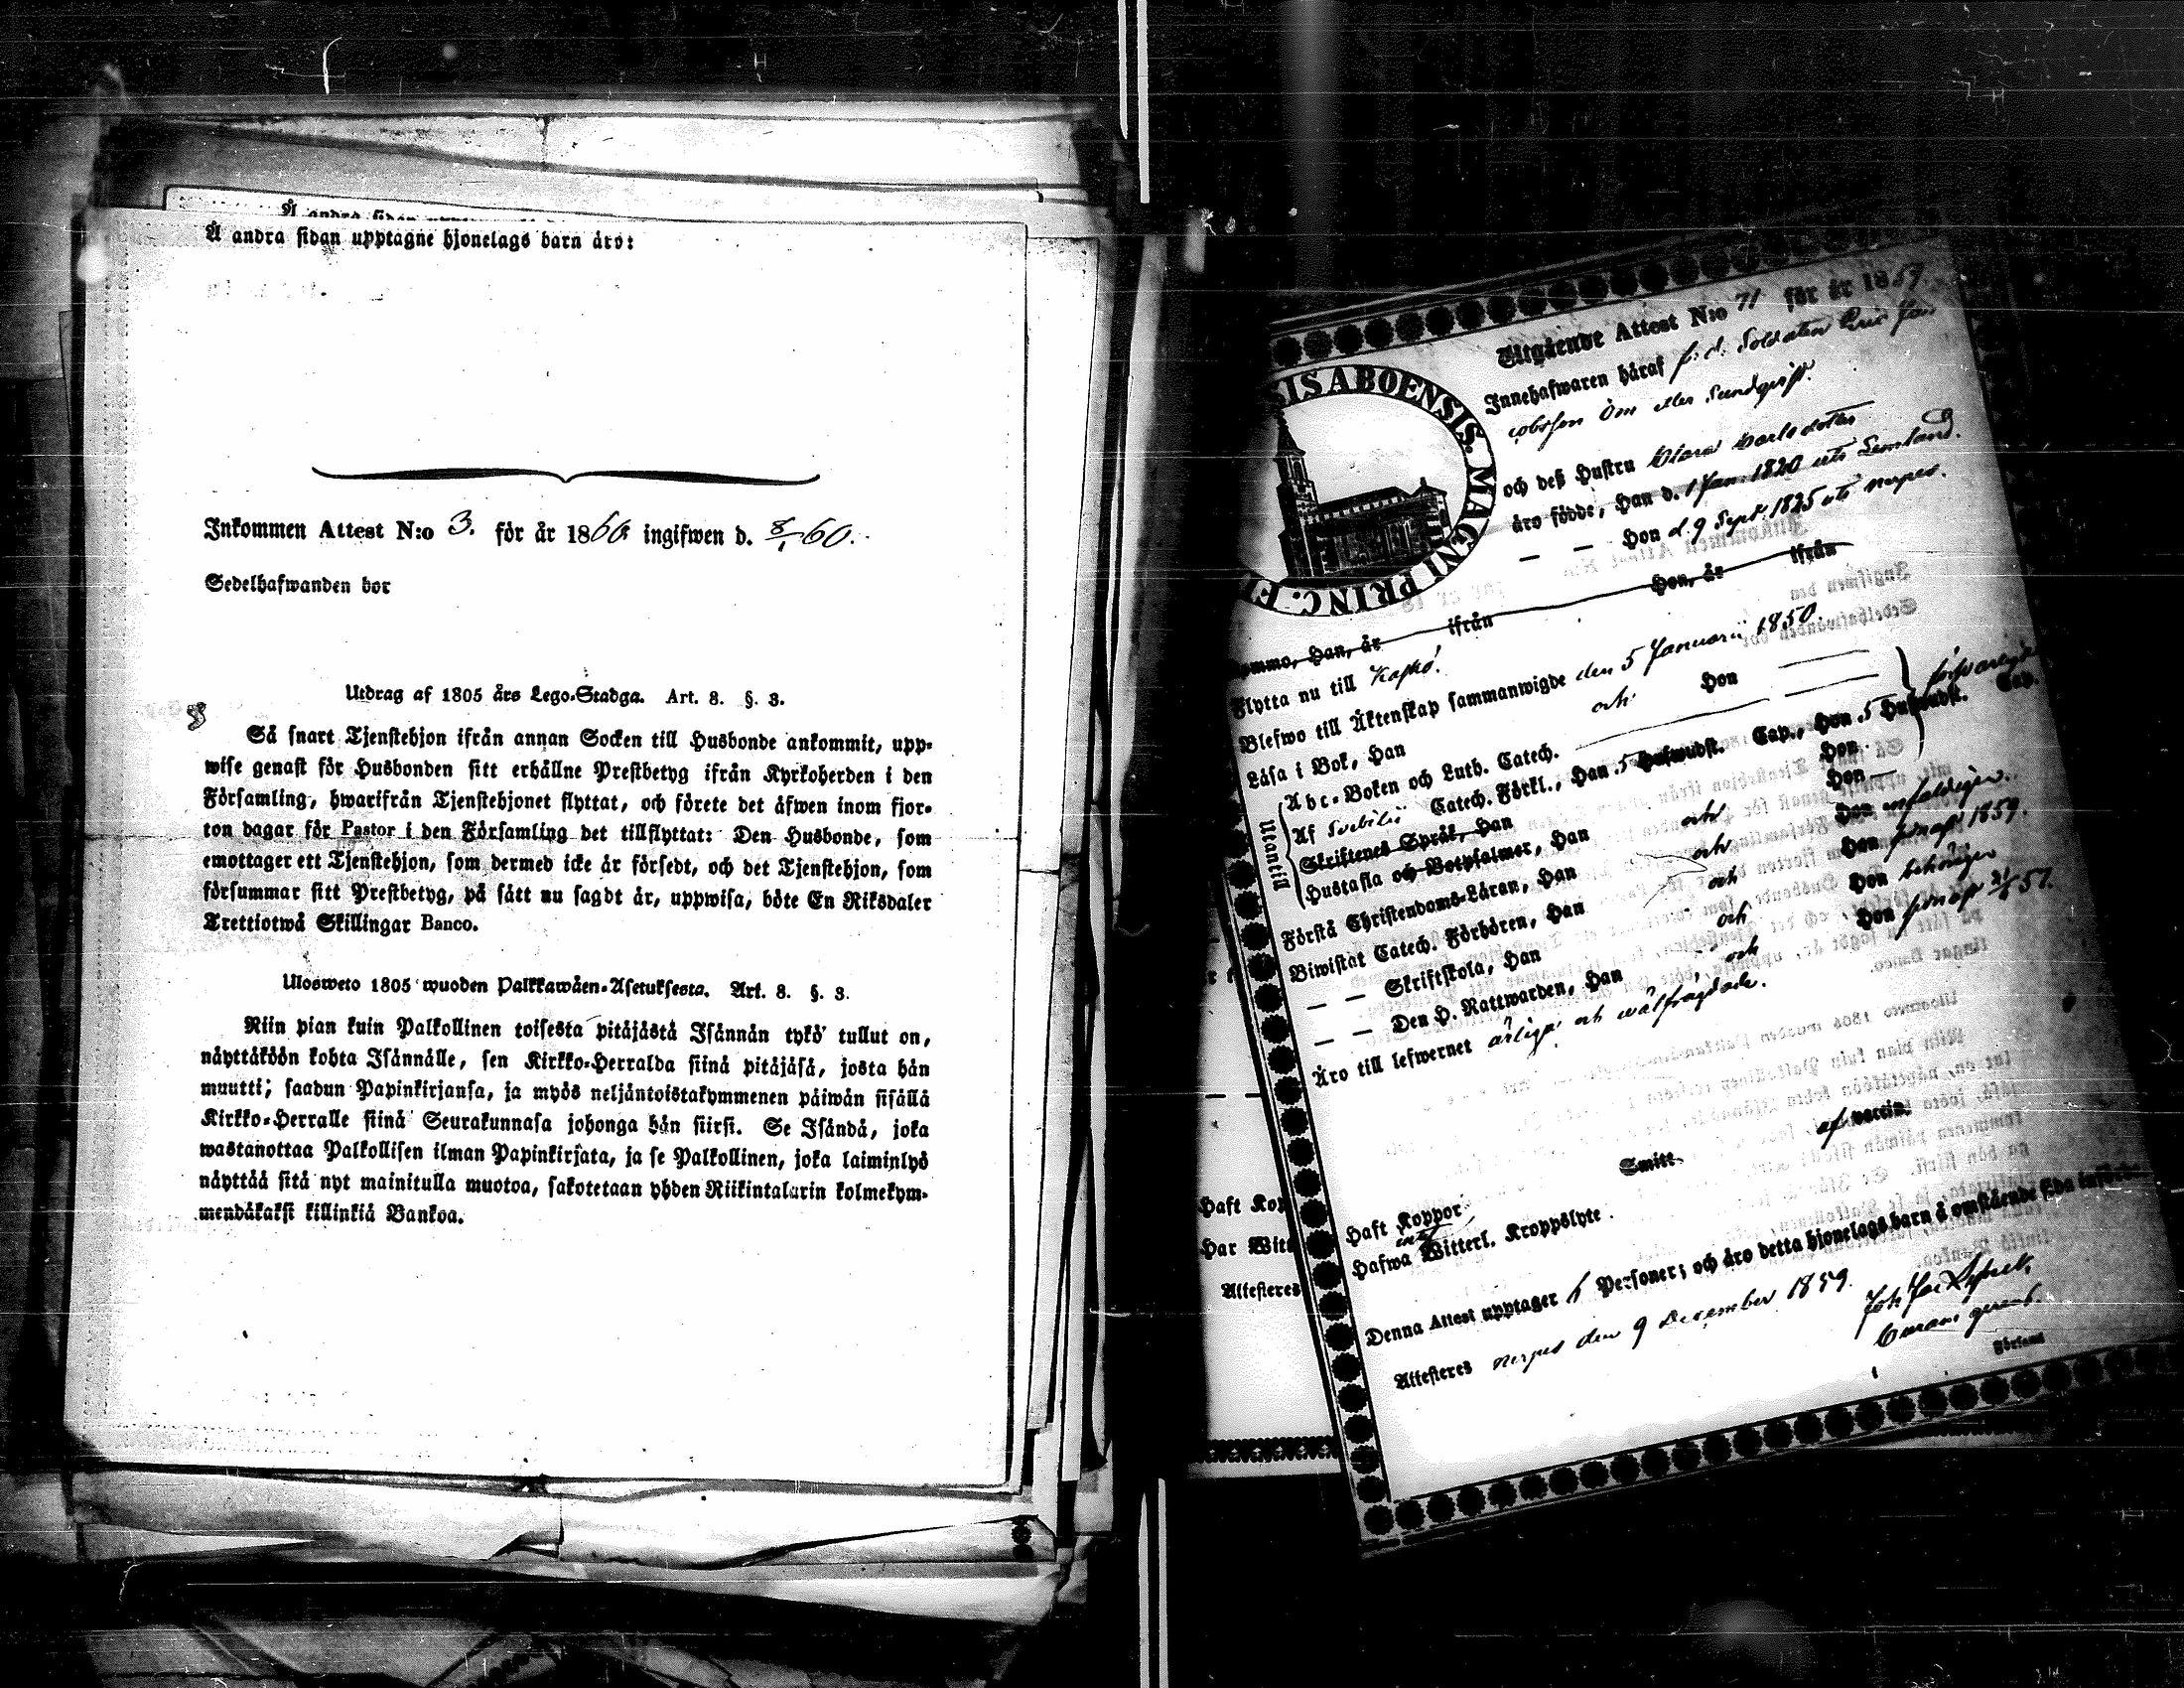 Å andra sidan upptagne hjonelags barn äro:
Inkommen Attest N:o 3. för år 1860 ingifwen d. 8/1 60.
Sedelhafwanden bor
Utdrag af 1805 års Lego-Stadga. Art. 8. §. 3.
Så snart Tjenstehjon ifrån annan Socken till Husbonde ankommit, upp-
wise genast för Husbonden sitt erhållne Prestbetyg ifrån Kyrkoherden i den
Församling, hwarifrån Tjenstehjonet flyttat, och förete det äfwen inom fjor-
ton dagar för Pastor i den Församling det tillflyttat: Den Husbonde, som
emottager ett Tjenstehjon, som dermed icke är försedt, och det Tjenstehjon, som
försummar sitt Prestbetyg, på sätt nu sagdt är, uppwisa, böte En Riksdaler
Trettiotwå Skillingar Banco.
Ulosweto 1805 wuoden Palkkawäen-Asetuksesta. Art. 8. §. 3.
Niin pian kuin Palkollinen toisesta pitäjästä Isännän tykö tullut on,
näyttäköön kohta Isännälle, sen Kirkko-Herralda siinä pitäjäsä, josta hän
muutti; saadun Papinkirjansa, ja myös neljäntoistakymmenen päiwän sisällä
Kirkko-Herralle siinä Seurakunnasa johonga hän siirsi. Se Isändä, joka
wastanottaa Palkollisen ilman Papinkirjata, ja se Palkollinen, joka laiminlyö
näyttää sitä nyt mainitulla muotoa, sakotetaan yhden Riikintalarin kolmekym-
mendäkaksi killinkiä Bankoa.
Utgående Attest N:o 71 för år 1859.
Innehafwaren häraf f.d. Soldaten Eric Ja
cobsson Öm eller Sundqvist.
SIS ABOENSIS. MAGNI PRINC. F
och deß Hustru Clara Carlsdotter
äro födde, Han d. 1 Jan. 1820 uti Lemland.
— — Hon d. 9 Sept. 1825 uti Nerpes.
ommo, Han, år ifrån Hon, år ifrån
Flytta nu till Kaskö.
Blefwo till Äktenskap sammanwigde den 5 Januarii 1850.
Läsa i Bok, Han och Hon
Utantill
Abc-Boken och Luth. Catech.
Af Svebilii Catech. Förkl., Han 5 Hufwudst. Cap., Hon 5 Hufwudst. Cap.
Skriftenes Språk, Han och Hon
Hustafla och Botpsalmer, Han och Hon
Förstå Christendoms-Läran, Han och Hon enfaldigen.
Biwistat Catech. Förhören, Han och Hon 1859.
— — Skriftskola, Han och Hon behörigen
— — Den H. Nattwarden, Han och Hon 57.
Äro till lefwernet ärliga och wälfrägdade.
Haft Koppor Smitt. af vaccin.
Hafwa intet Witterl. Kroppslyte
Denna Attest upptager 6 Personer; och äro detta hjonelags barn å omstående sida införde
Attesteres Nerpes den 9 December 1859.
Curam gerens.
Haft Kop
Har Witt
Attesteres